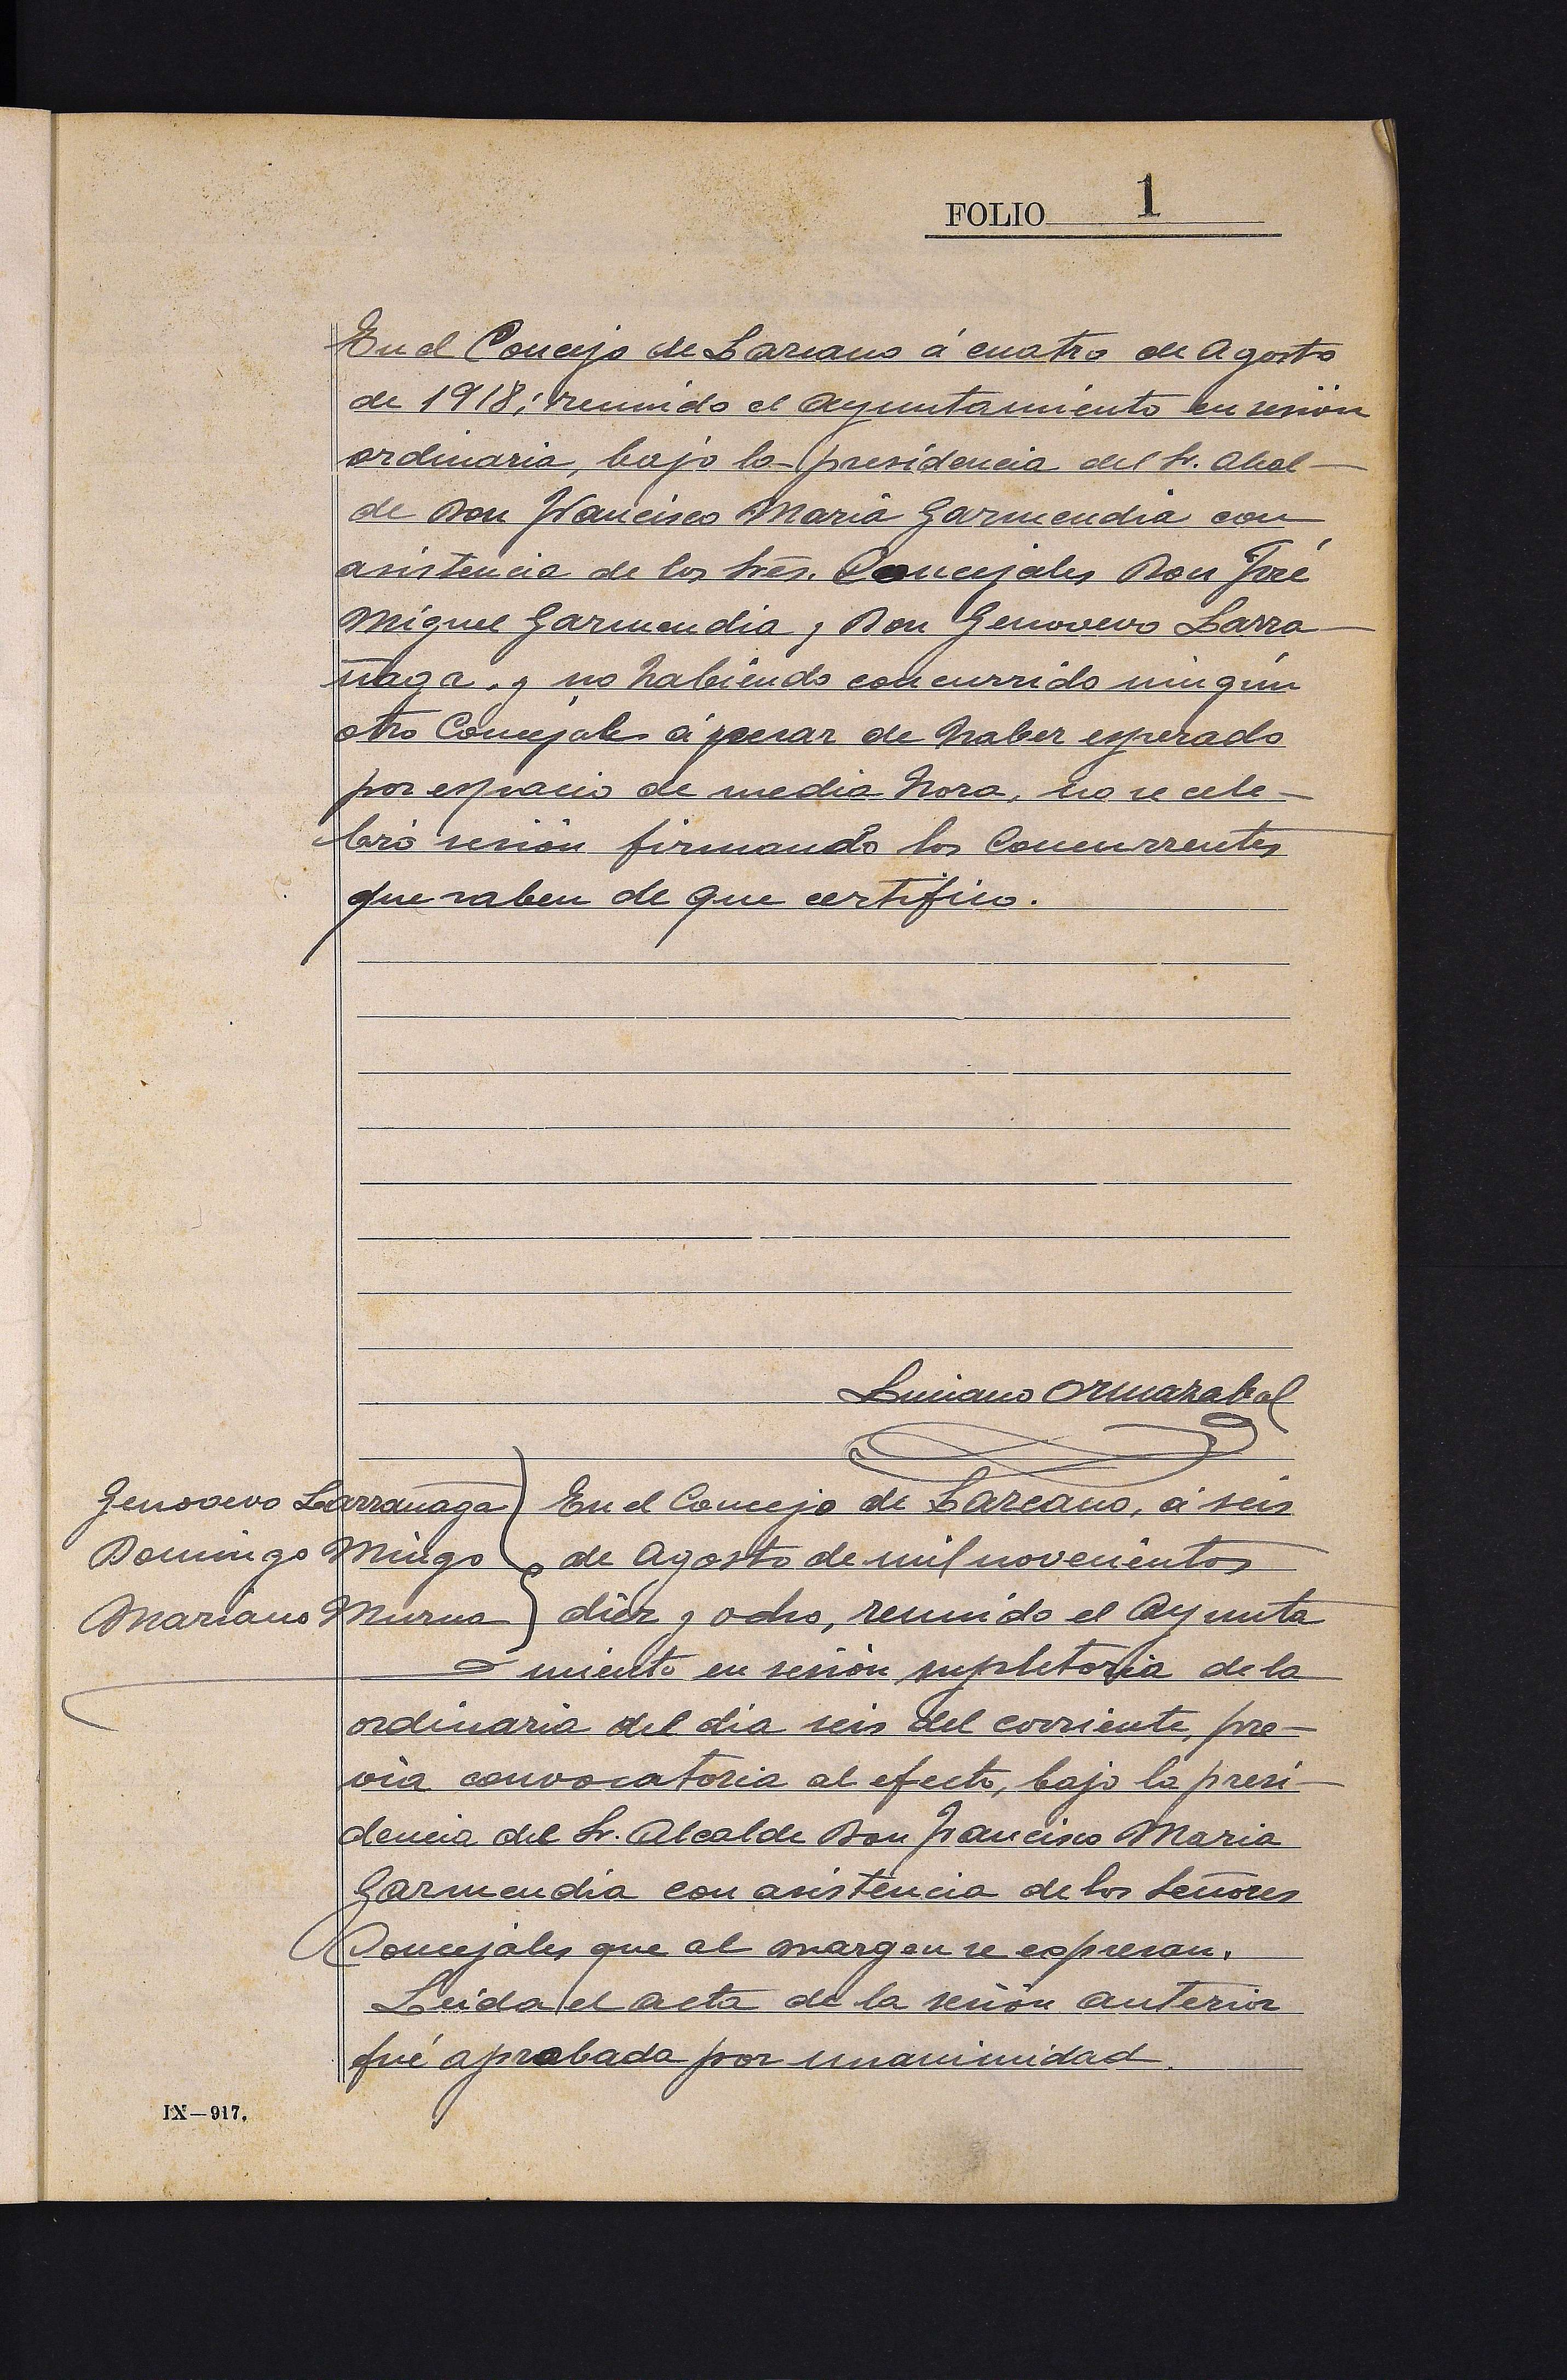 FOLIO 1
En el Concejo de Lazcano á cuatro de Agosto
de 1918; reunido el Ayuntamiento en sesión
ordinaria, bajo la presidencia del Sr. Alcal-
de Don Francisco María Garmendia con
asistencia de los Sres. Concejales Don José
Miguel Garmendia, y Don Genovevo Larra-
ñaga, y no habiendo concurrido ningún
otro Concejales á pesar de haber esperado
por espacio de media hora, no se cele-
bró sesión firmando los Concurrentes
que saben de que certifico.
Luciano Ormazabal
Genovevo Larrañaga
Domingo Mingo
Mariano Murua
En el Concejo de Lazcano, á seis
de Agosto de mil novecientos
diez y ocho, reunido el Ayunta
miento en sesión supletoria de la
ordinaria del dia seis del corriente, pre-
via convocatoria al efecto, bajo la presi-
dencia del Sr. Alcalde Don Francisco Maria
Garmendia con asistencia de los Señores
Concejales que al margen se expresan.
Leida el acta de la sesión anterior
fué aprobada por unanimidad.
IX—917.